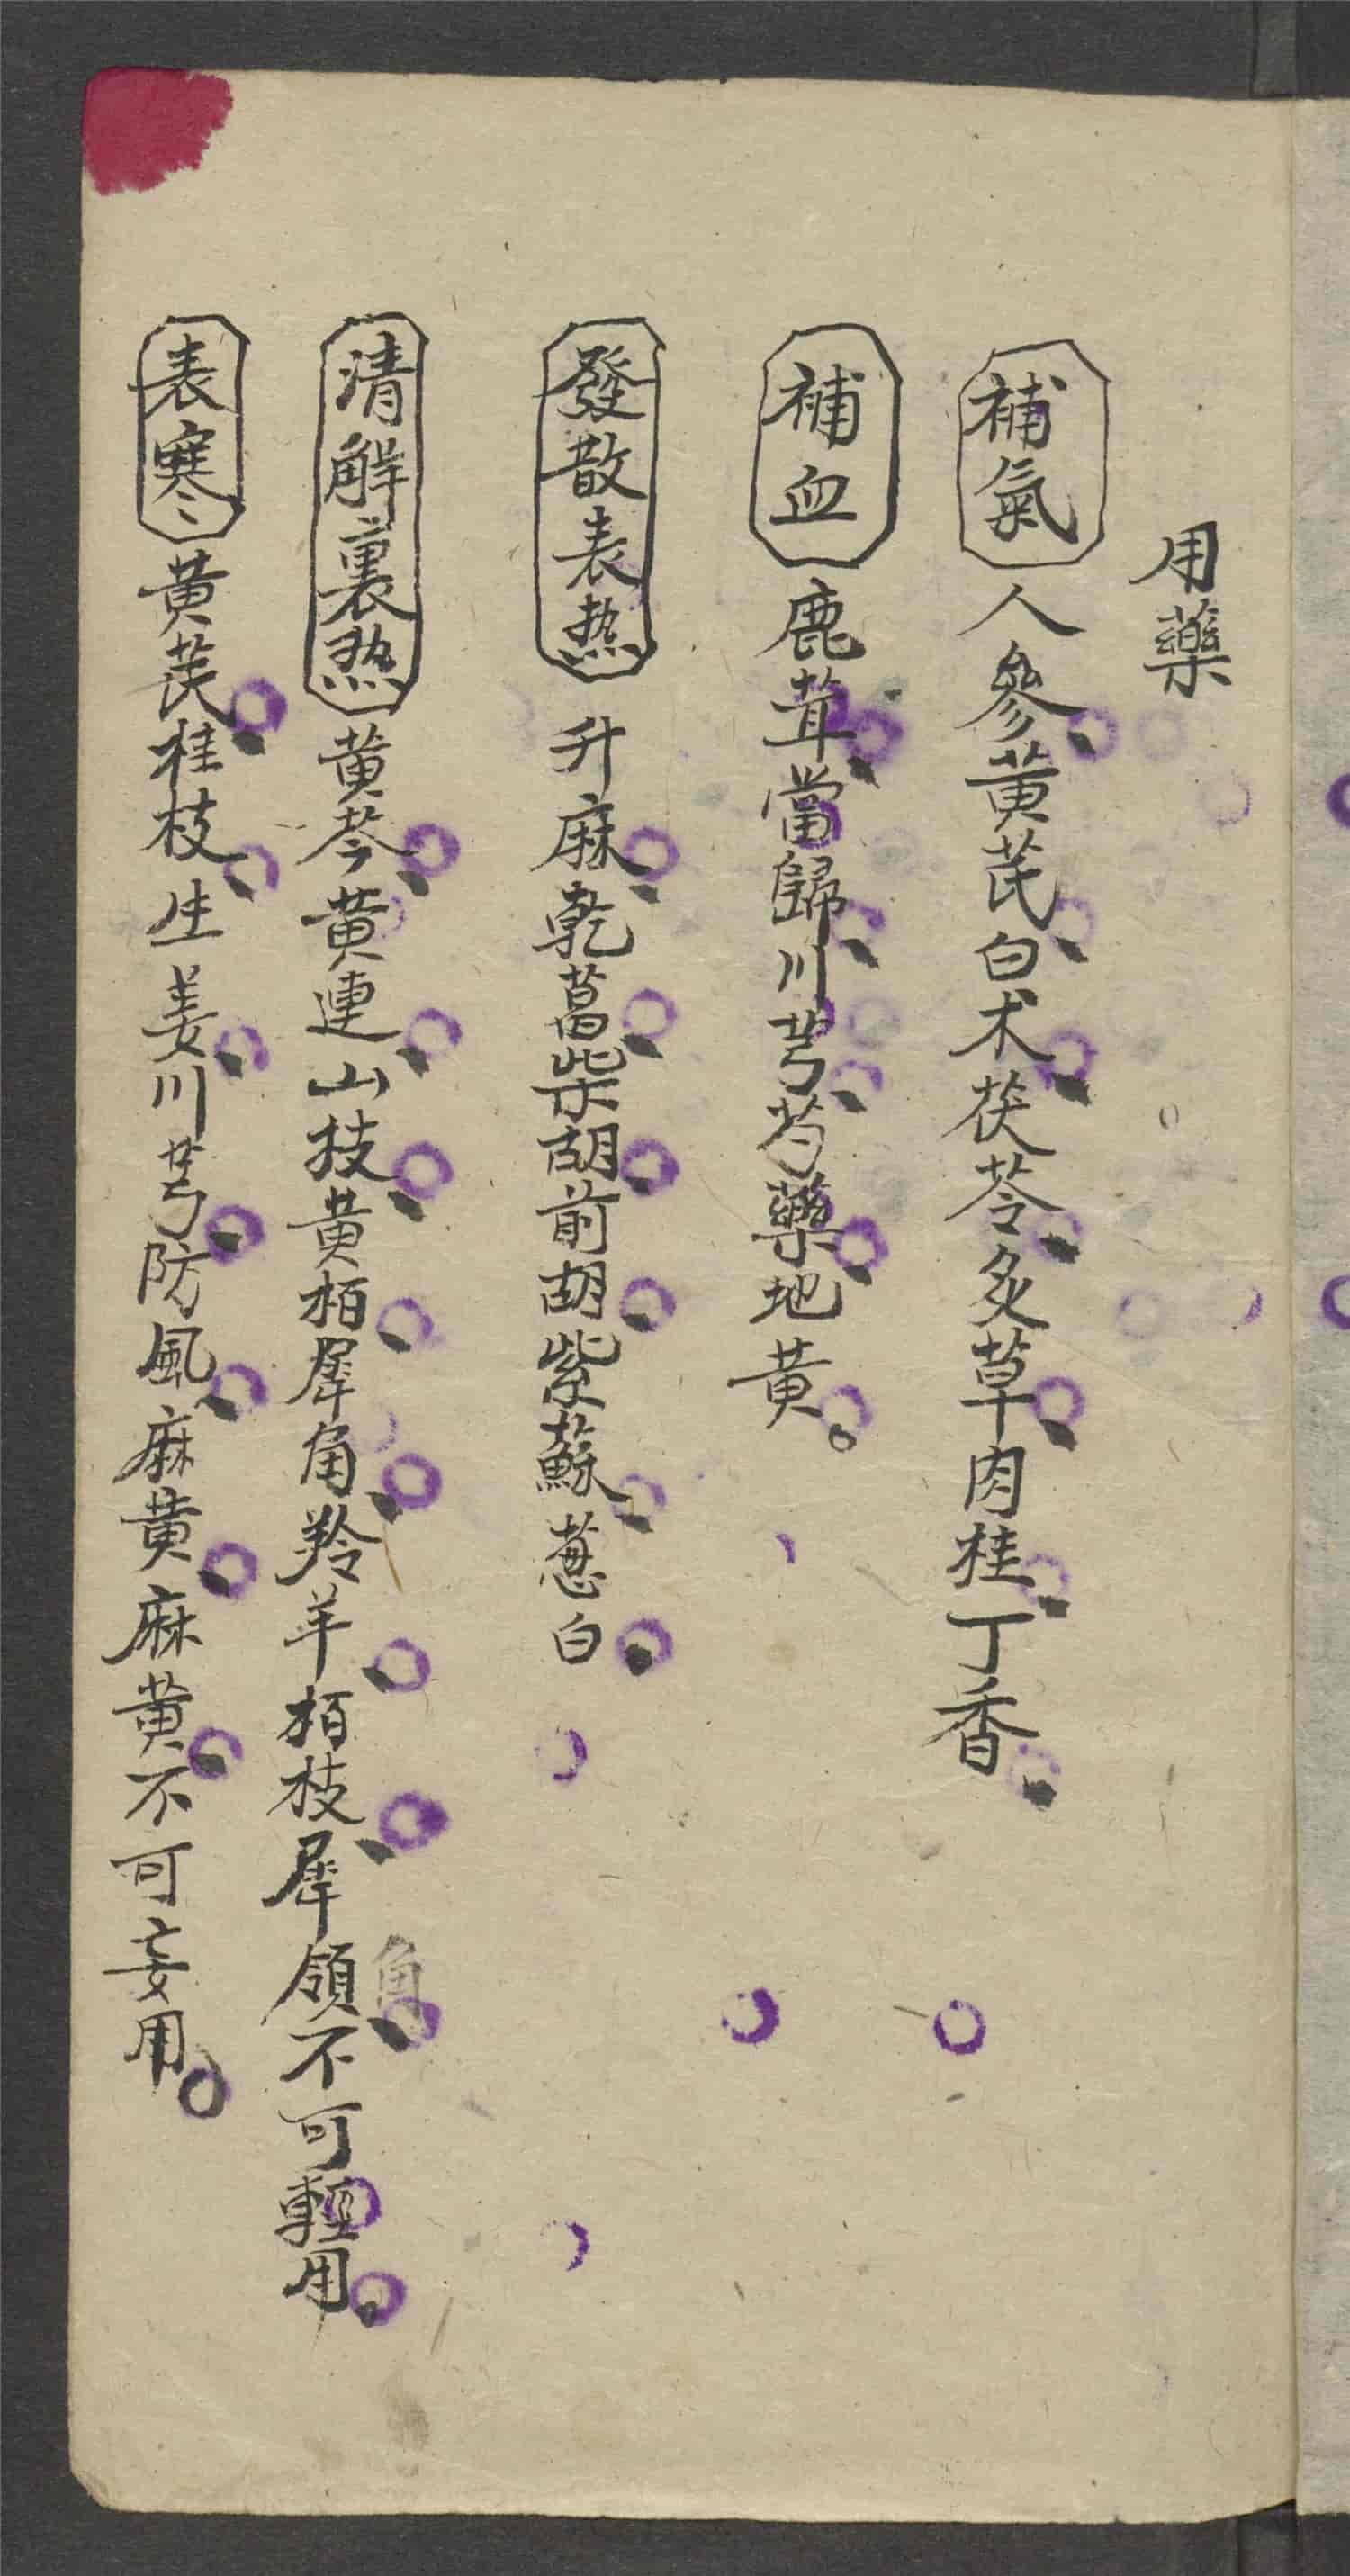 用藥
補氣 人參、黃芪、白术、茯苓、炙草、肉桂、丁香、
補血 鹿茸、當歸、川芎、芍藥、地黃。
發散表热 升麻、乾葛、柴胡、前胡、紫蘇、葱白、
清解裏热 黃芩、黃連、山枝、黃栢、犀角、羚羊、栢枝、犀領、不可輕用。
角
表寒 黃芪、桂枝、生姜、川芎、防風、麻黃、麻黃、不可妄用。